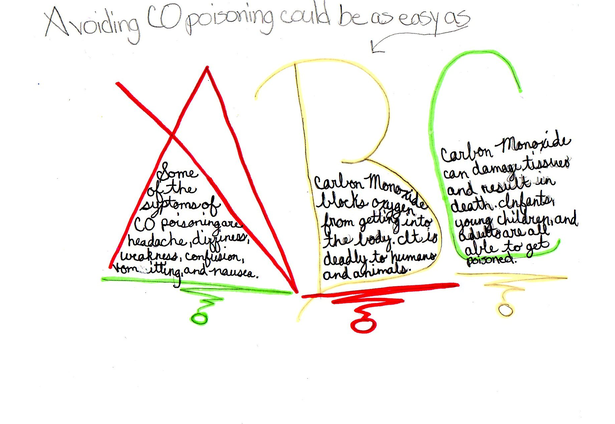 Avoiding CO poisoning could be as easy as
A B C
Some
of the
syptoms of
CO poisoning are
headache, dizziness,
weakness, confusion,
vomitting, and nausea.
Carbon Monoxide
blocks oxygen
from getting into
the body. It is
deadly to humans
and animals.
Carbon Monoxide
can damage tissues
and result in
death. Infants,
young children, and
adults are all
able to get
poisoned.